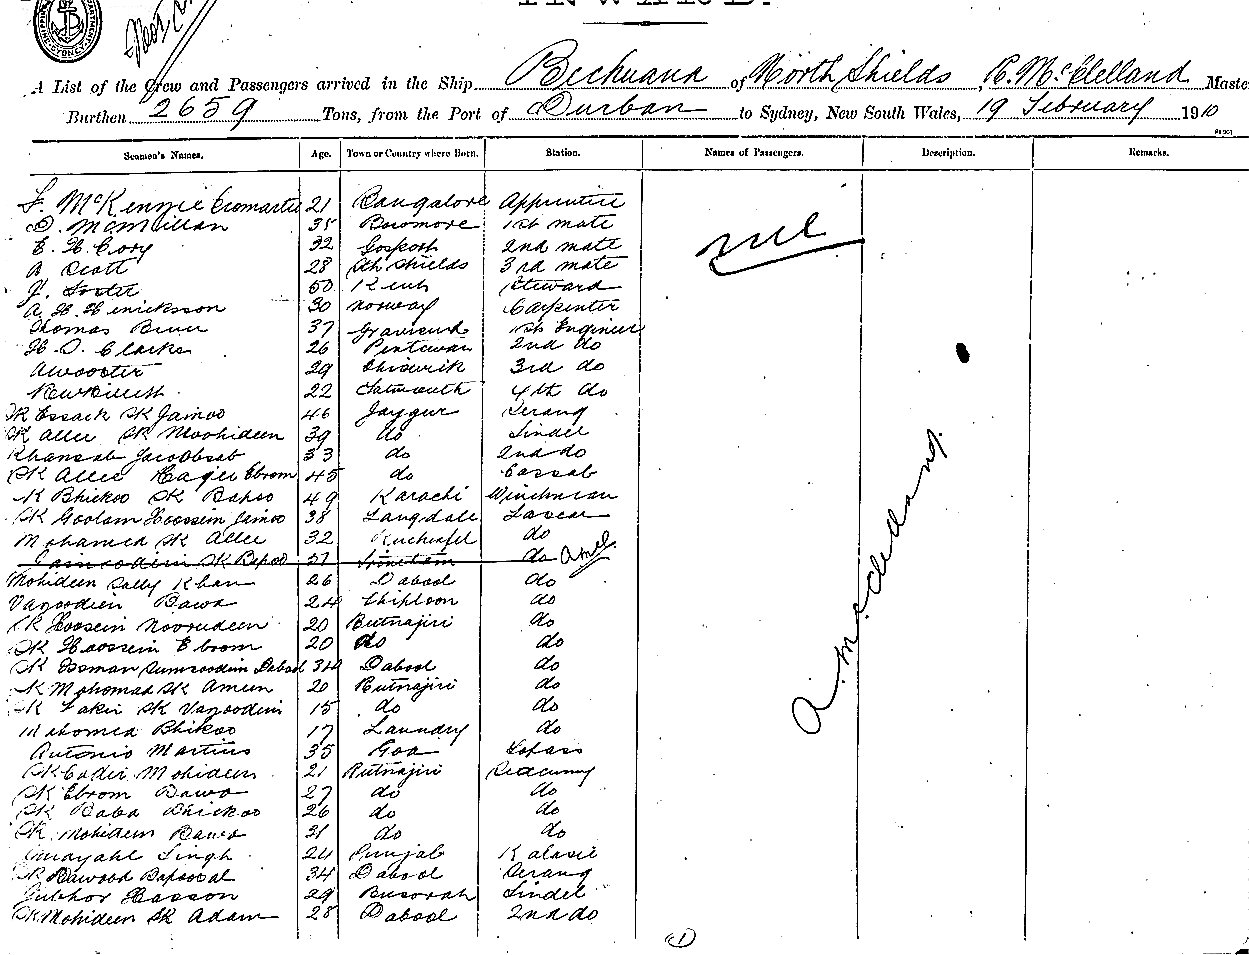 INWARD.
A List of the Crew and Passengers arrived in the Ship Bechuana of North Shields, R. McClelland Maste
Burthen 2659 Tons, from the Port of Durban to Sydney, New South Wales, 19 February 1910
Seamen's Names. Age. Town or Country where Born. Station. Names of Passengers. Description. Remarks.
F. McKenzie Cromartie 21 Bangalore Apprentice
D. McMillan 35 Bowmore 1st mate
E. H. Cory 32 Gosport 2nd mate
A Scott 28 Sth Shields 3rd mate
J. Foster 50 Kent Steward
A. H. Henicksson 30 Norway Carpenter
Thomas 37 Gravesend 1st Engineer
H. D. Clarke 26 Pentewan 2nd do
A Wooster 29 Chiswick 3rd do
22 Yarmouth 4th do
SK Essack SK Jamoo 46 Jaygur Serang
SK Allee SK Moohideen 39 do Tindel
Khansab Jacobsab 33 do 2nd do
SK Allee Hajee Ebrom 45 do Cassab
SK Bhickoo SK Bapoo 49 Karachi Winchman
SK Goolam Hoossein Jamoo 38 Langdale Lascar
Mohamed SK Allee 32 do
SK Bapoo 51 do
Mohideen Sally Khan 26 Dabool do
Vagoodien Bawa 24 Chiploon do
SK Hoosein Noorudeen 20 Rutnajiri do
SK Hoossein Ebrom 20 do do
SK Esman Sumsoodin Dabool 34 Dabool do
SK Mohomad SK Ameen 20 Rutnajiri do
SK Fakir SK Vagoodien 15 do do
Mahomed Bhikoo 17 Laundry do
Antonio Martins 35 Goa
SK Cadir Mohideen 21 Rutnajiri
SK Ebrom Bawa 27 do do
SK Baba Bhickoo 26 do do
SK Mohideen Bawa 21 do do
Singh 24 Punjab Kalasie
SK Dawood Bapoosal 34 Dabool Serang
Hasson 29 Busorah Tindel
SK Mohideen SK Adam 28 Dabool 2nd do
nil
1